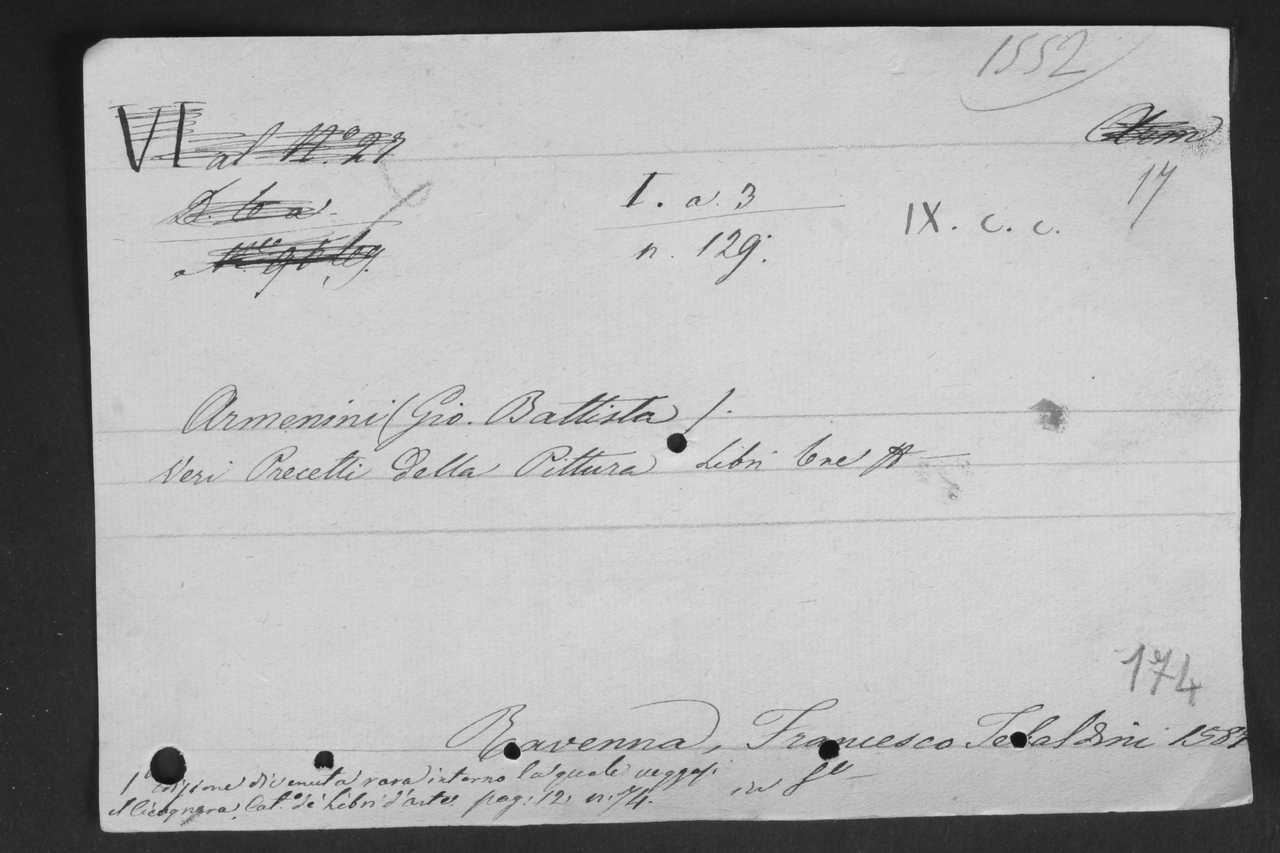 1552
VI al N.º 27
17
I. a. 3
IX. c. c.
n. 129.
Armenini (Gio. Battista).
Veri Precetti della Pittura Libri tre
174
Ravenna, Francesco Tebaldini 1587
1ª edizione divenuta rara intorno la quale veggasi
il Cicognara, Cat.º de' Libri d'arte pag. 12. n. 74. in 4º